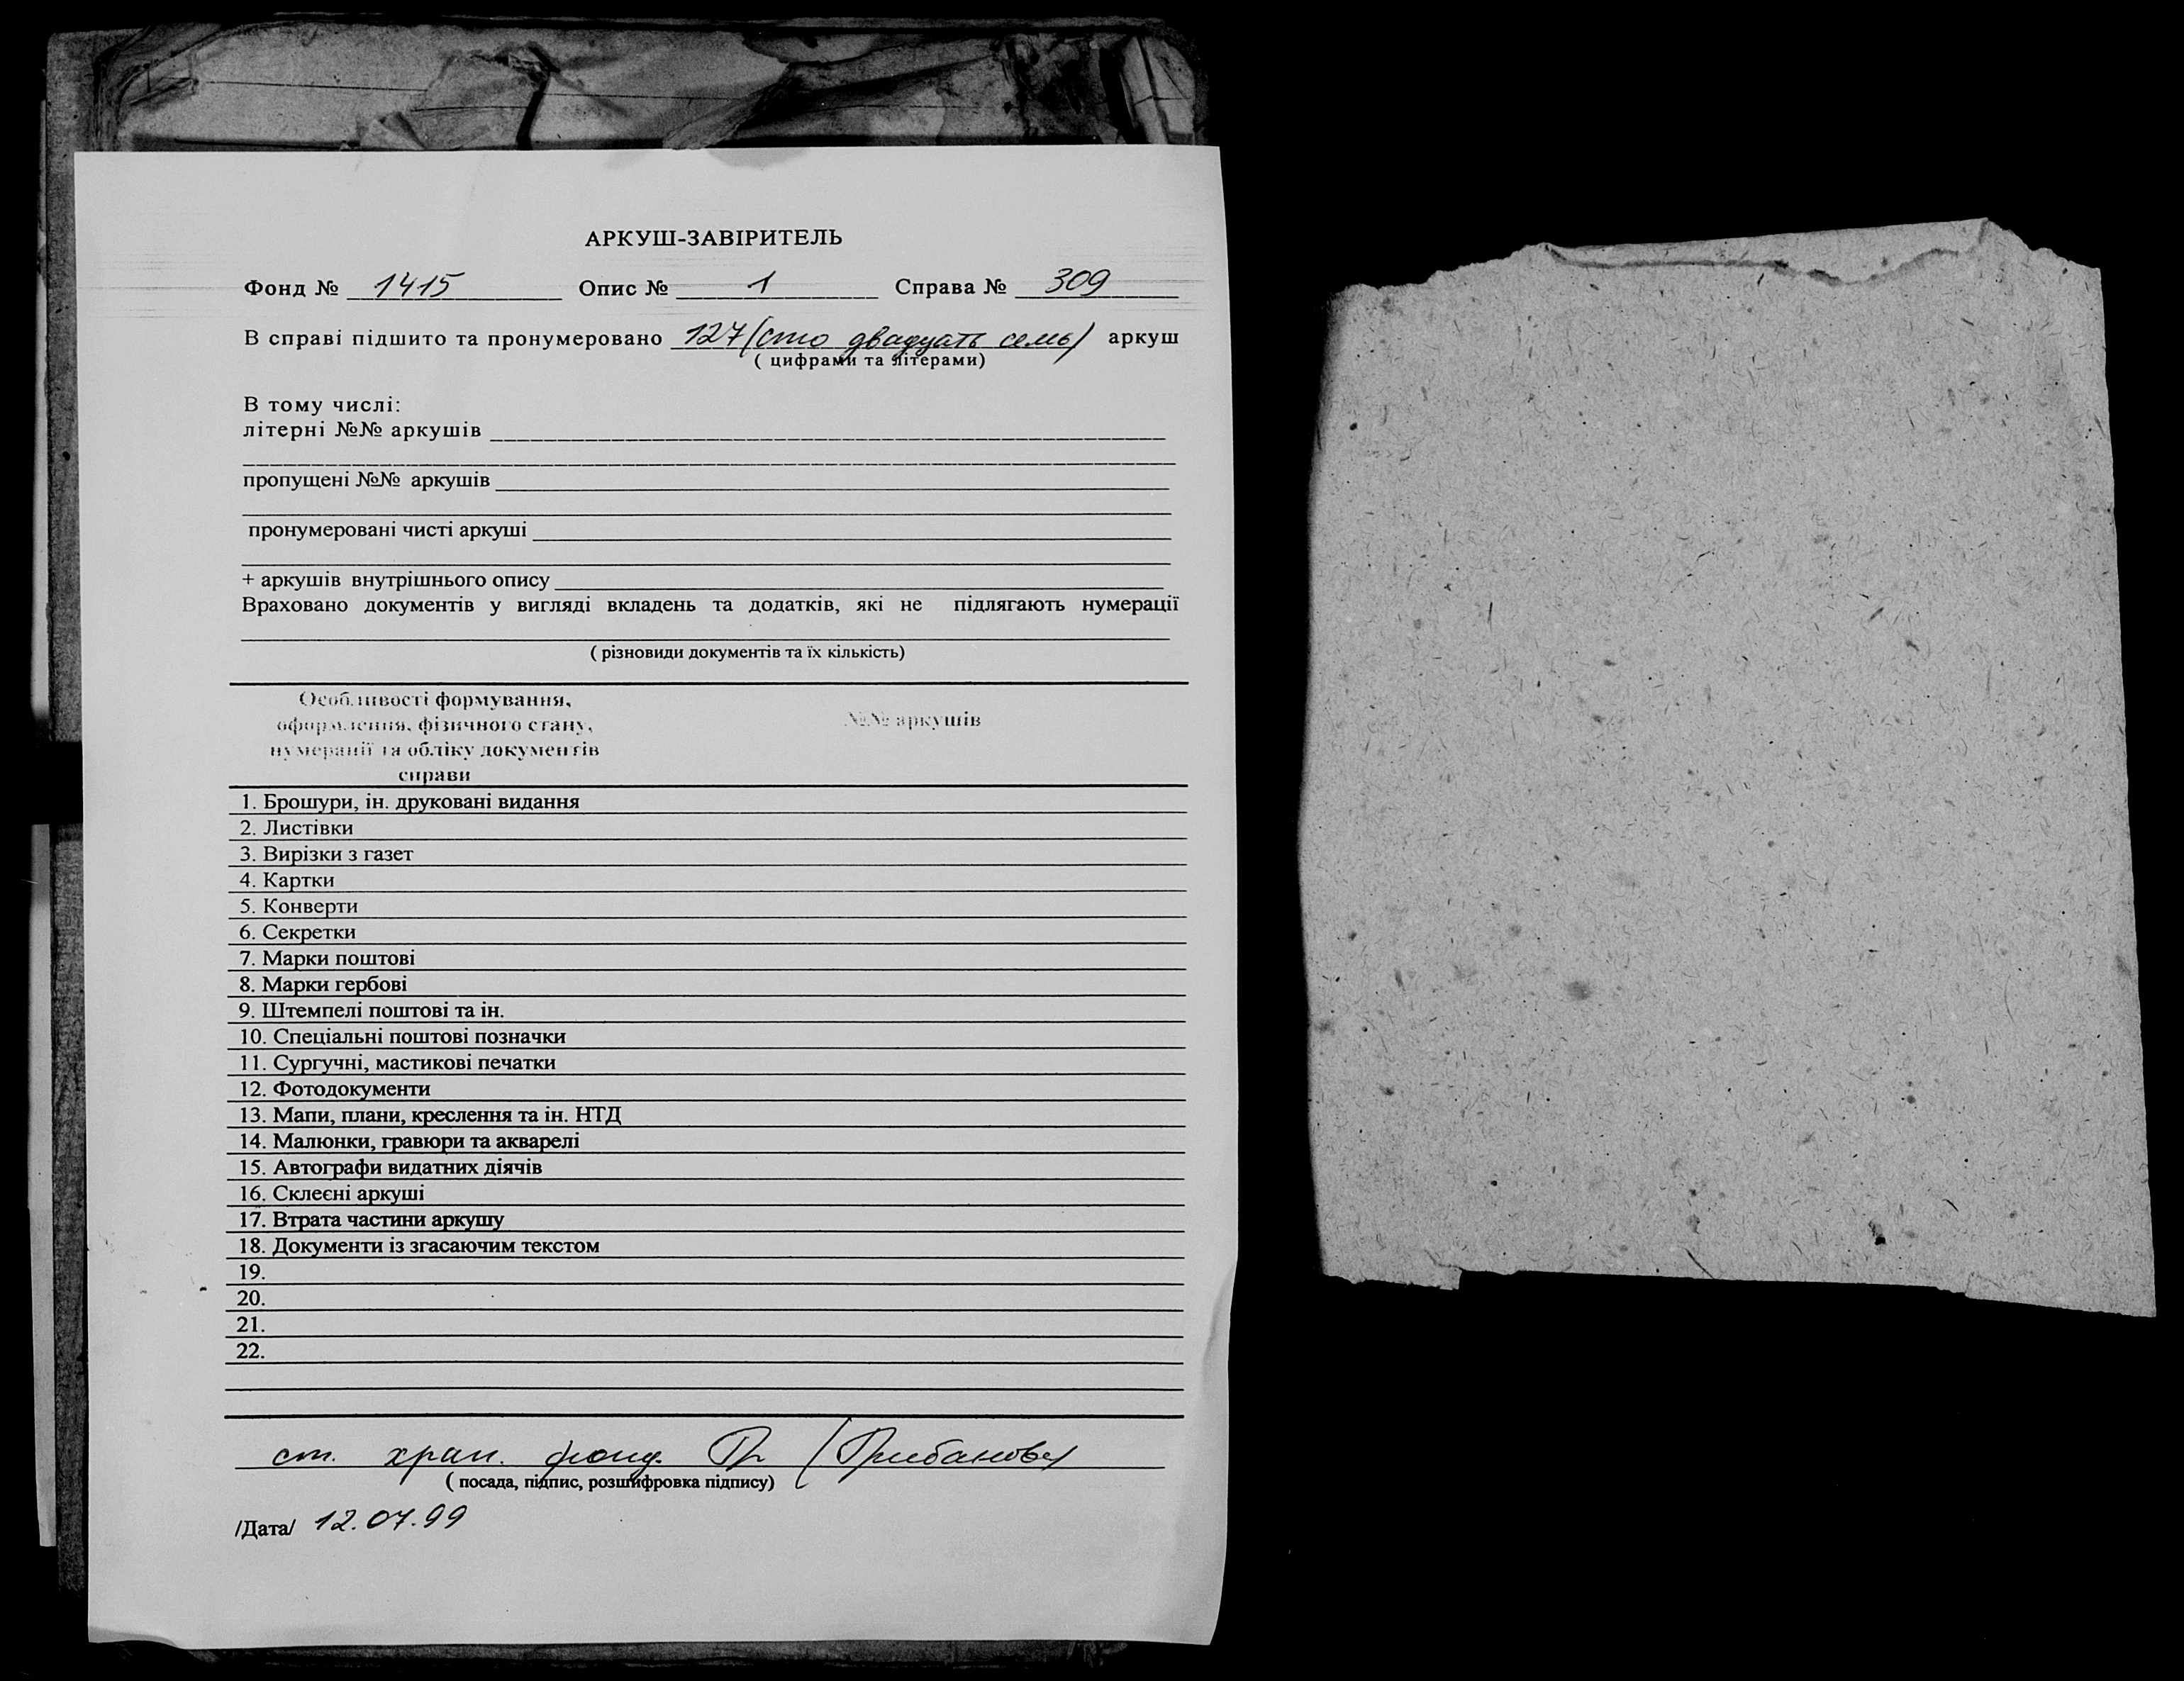 АРКУШ-ЗАВІРИТЕЛЬ
Фонд № 1415 Опис № 1 Справа № 309
В справі підшито та пронумеровано 127 (сто двадцать семь) аркуш
( цифрами та літерами)
В тому числі:
літерні №№ аркушів
пропущені №№ аркушів
пронумеровані чисті аркуші
+ аркушів внутрішнього опису
Враховано документів у вигляді вкладень та додатків, які не підлягають нумерації
( різновиди документів та їх кількість)
Особливості формування, №№ аркушів
оформлення, фізичного стану,
нумерації та обліку документів
справи
1. Брошури, ін. друковані видання
2. Листівки
3. Вирізки з газет
4. Картки
5. Конверти
6. Секретки
7. Марки поштові
8. Марки гербові
9. Штемпелі поштові та ін.
10. Спеціальні поштові позначки
11. Сургучні, мастикові печатки
12. Фотодокументи
13. Мапи, плани, креслення та ін. НТД
14. Малюнки, гравюри та акварелі
15. Автографи видатних діячів
16. Склеєні аркуші
17. Втрата частини аркушу
18. Документи із згасаючим текстом
19.
20.
21.
22.
ст. хран. фонд.
( посада, підпис, розшифровка підпису)
/Дата/ 12.07.99